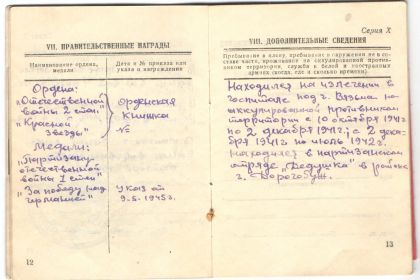 VII. ПРАВИТЕЛЬСТВЕННЫЕ НАГРАДЫ
Наименование ордена, медали
Дата и № приказа или указа о награждении
Ордена:
"Отечественной
войны 2 степ.
"Красной
Звезды"
Орденская
Книжка
№
Медали:
"Партизану
отечественной
войны 1 степ"
"За победу над
Германией"
Указ от
9-5-1945г.
12
Серия X
VIII. ДОПОЛНИТЕЛЬНЫЕ СВЕДЕНИЯ
Пребывание в плену, пребывание в окружении не в со-
ставе части, проживание на оккупированной против-
ником территории, служба в белой и иностранных
армиях (когда, где и сколько времени)
Находился на излечении в
госпитале под г. Вязьма на
оккупированной противником
территории с 10 октября 1941г
по 2 декабря 1941г; с 2 дека-
бря 1941г по июль 1942г.
находился в партизанском
отряде "Дедушка" в районе
г. Дорогобуж.
13